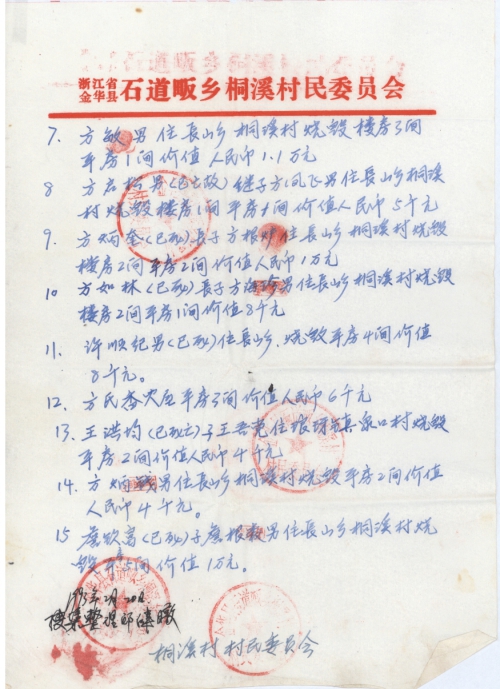 浙江省金华县石道畈乡桐溪村民委员会
7. 方敏男住長山乡桐溪村烧毁楼房3间
平房1间价值人民币1.1万元
8 方 男(已故)继子方凤飞男住長山乡桐溪
村烧毁楼房1间平房4间价值人民币5千元
9. 方炳奎(已死)長子方根 住長山乡桐溪村烧毁
楼房2间平房2间价值人民币1万元
10 方如林(已死)長子方海 男住長山乡桐溪村烧毁
楼房2间平房1间价值8千元
11. 许顺纪男(已死)住長山乡、烧毁平房4间价值
8千元。
12. 方氏 平房3间价值人民币6千元
13. 王洪均(已死)子王 住琅琊镇泉口村烧毁
平房2间价值人民币4千元
14. 方炳 男住長山乡桐溪村烧毁平房2间价值
人民币4千元。
15 詹钦高(已死)子詹根 男住長山乡桐溪村烧
毁 5间价值1万元。
搜集整理
桐溪村村民委员会